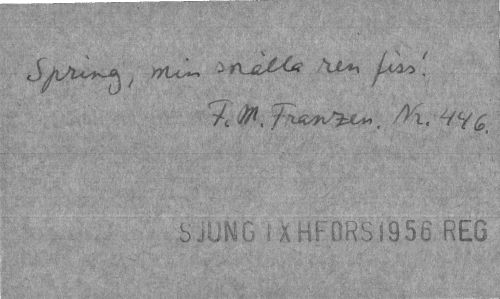 Spring, min snälla ren
F. M. Franzen. Nr. 446.
SJUNG IX HFORS 1956 REG